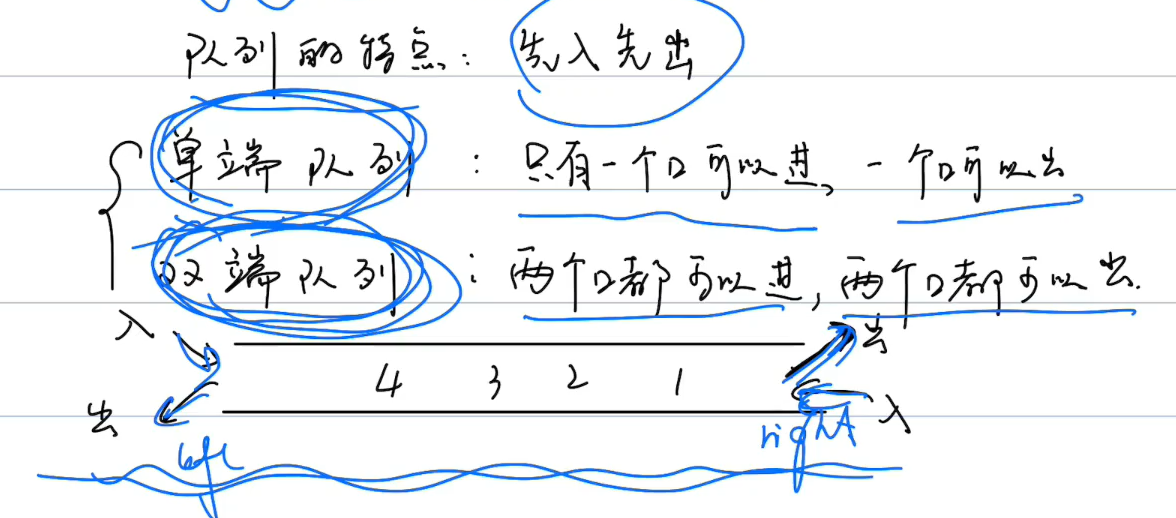 队列的特点：先入先出
单端队列：只有一个口可以进，一个口可以出
双端队列：两个口都可以进，两个口都可以出.
入 出
4 3 2 1
出 入
left right